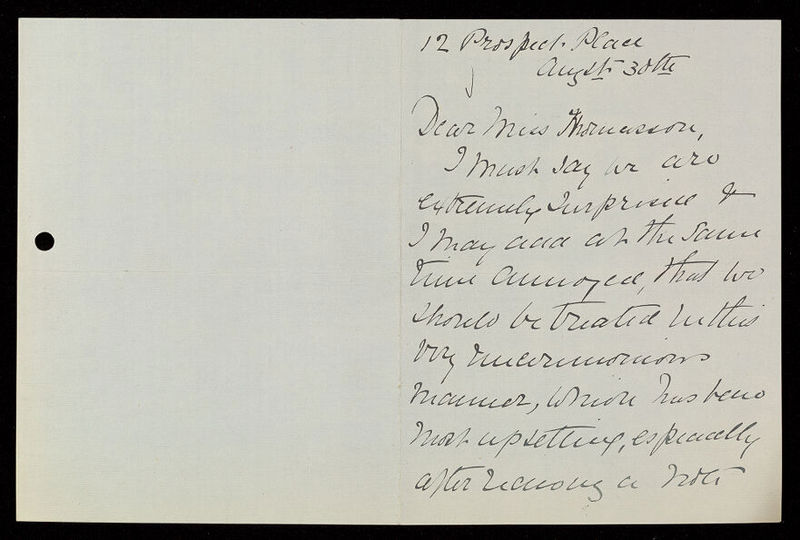 12 Prospect Place
Augst 30th
Dear Miss Thomasson,
I must say we are
extremely surprised &
I may add at the same
time annoyed, that we
should be treated in this
very unceremonious
manner, which has been
most upsetting, especially
after receiving a note